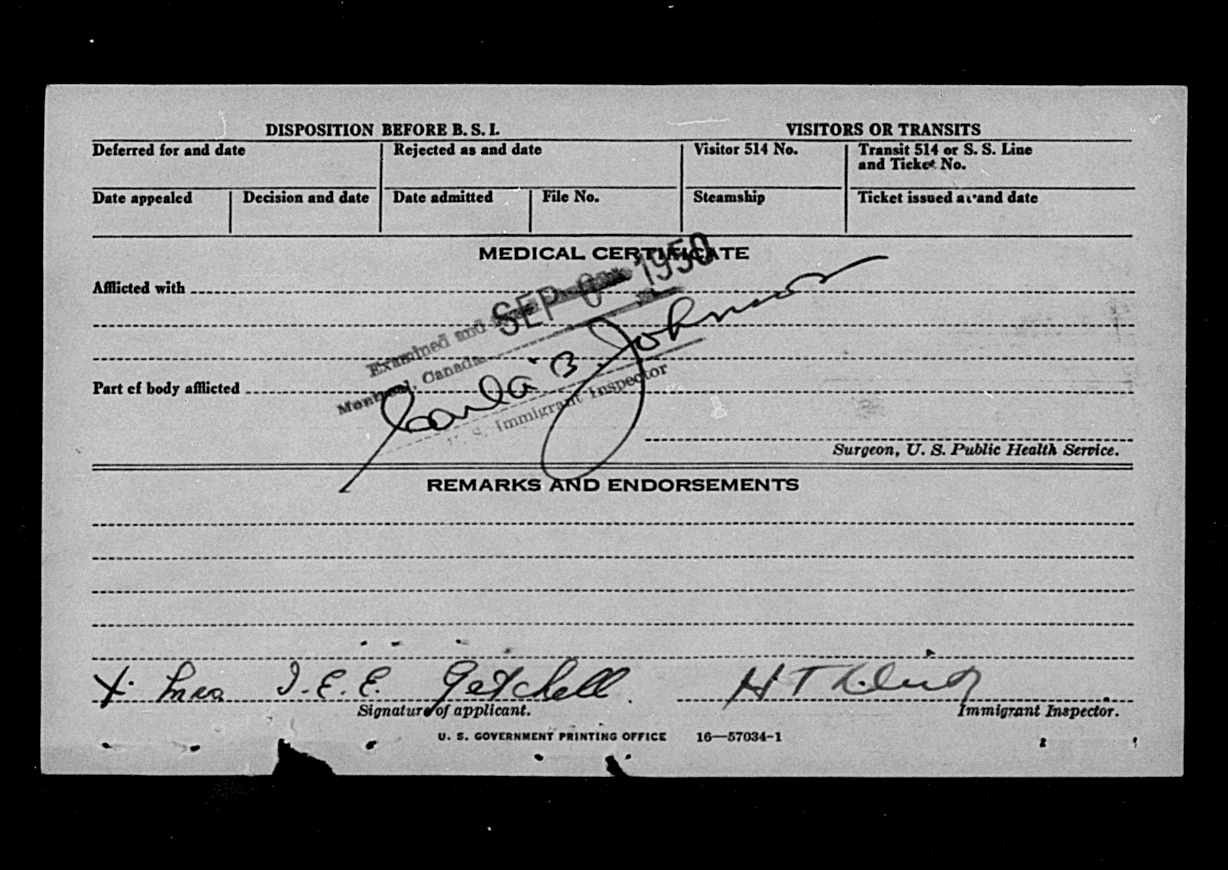 DISPOSITION BEFORE B. S. I.
VISITORS OR TRANSITS
Deferred for and date
Rejected as and date
Visitor 514 No.
Transit 514 or S. S. Line and Ticket No.
Date appealed
Decision and date
Date admitted
File No.
Steamship
Ticket issued at and date
MEDICAL CERTIFICATE
SEP 1950
Afflicted with
Examined and
Montreal, Canada
Johnson
U. S. Immigrant Inspector
Part of body afflicted
Surgeon, U. S. Public Health Service.
REMARKS AND ENDORSEMENTS
X I. E. E. Getchell
H T
Signature of applicant.
Immigrant Inspector.
U. S. GOVERNMENT PRINTING OFFICE 16—57034-1